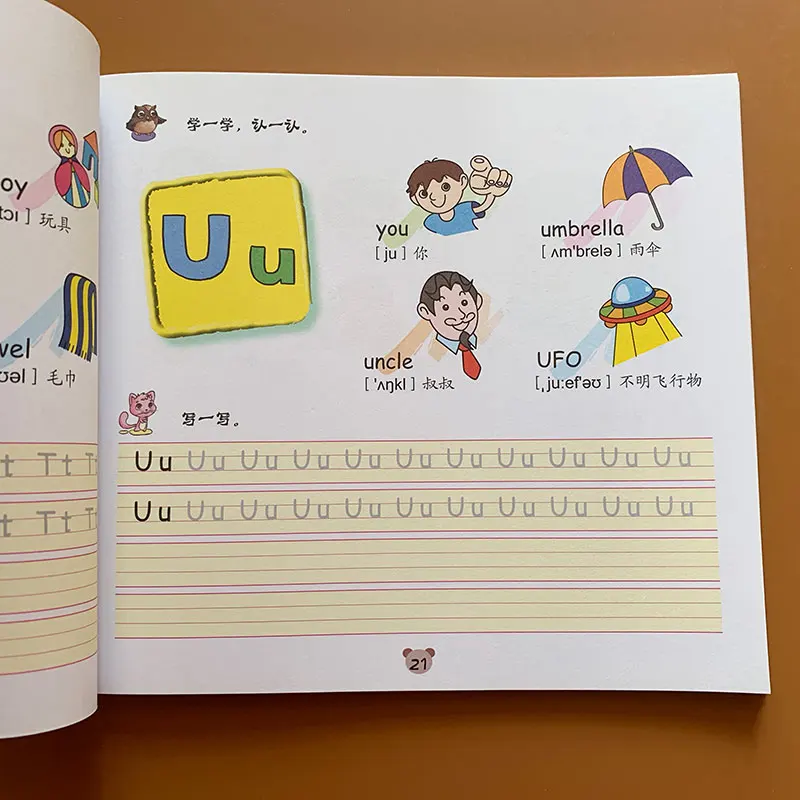 玩具
毛巾
t Tt T
t Tt T
学一学，认一认。
Uu
you
[ ju ] 你
umbrella
[ ʌm'brelə ] 雨伞
uncle
[ 'ʌŋkl ] 叔叔
UFO
[ˌju:ef'əʊ ] 不明飞行物
写一写。
Uu Uu Uu Uu Uu Uu Uu Uu Uu Uu Uu
Uu Uu Uu Uu Uu Uu Uu Uu Uu Uu Uu
21